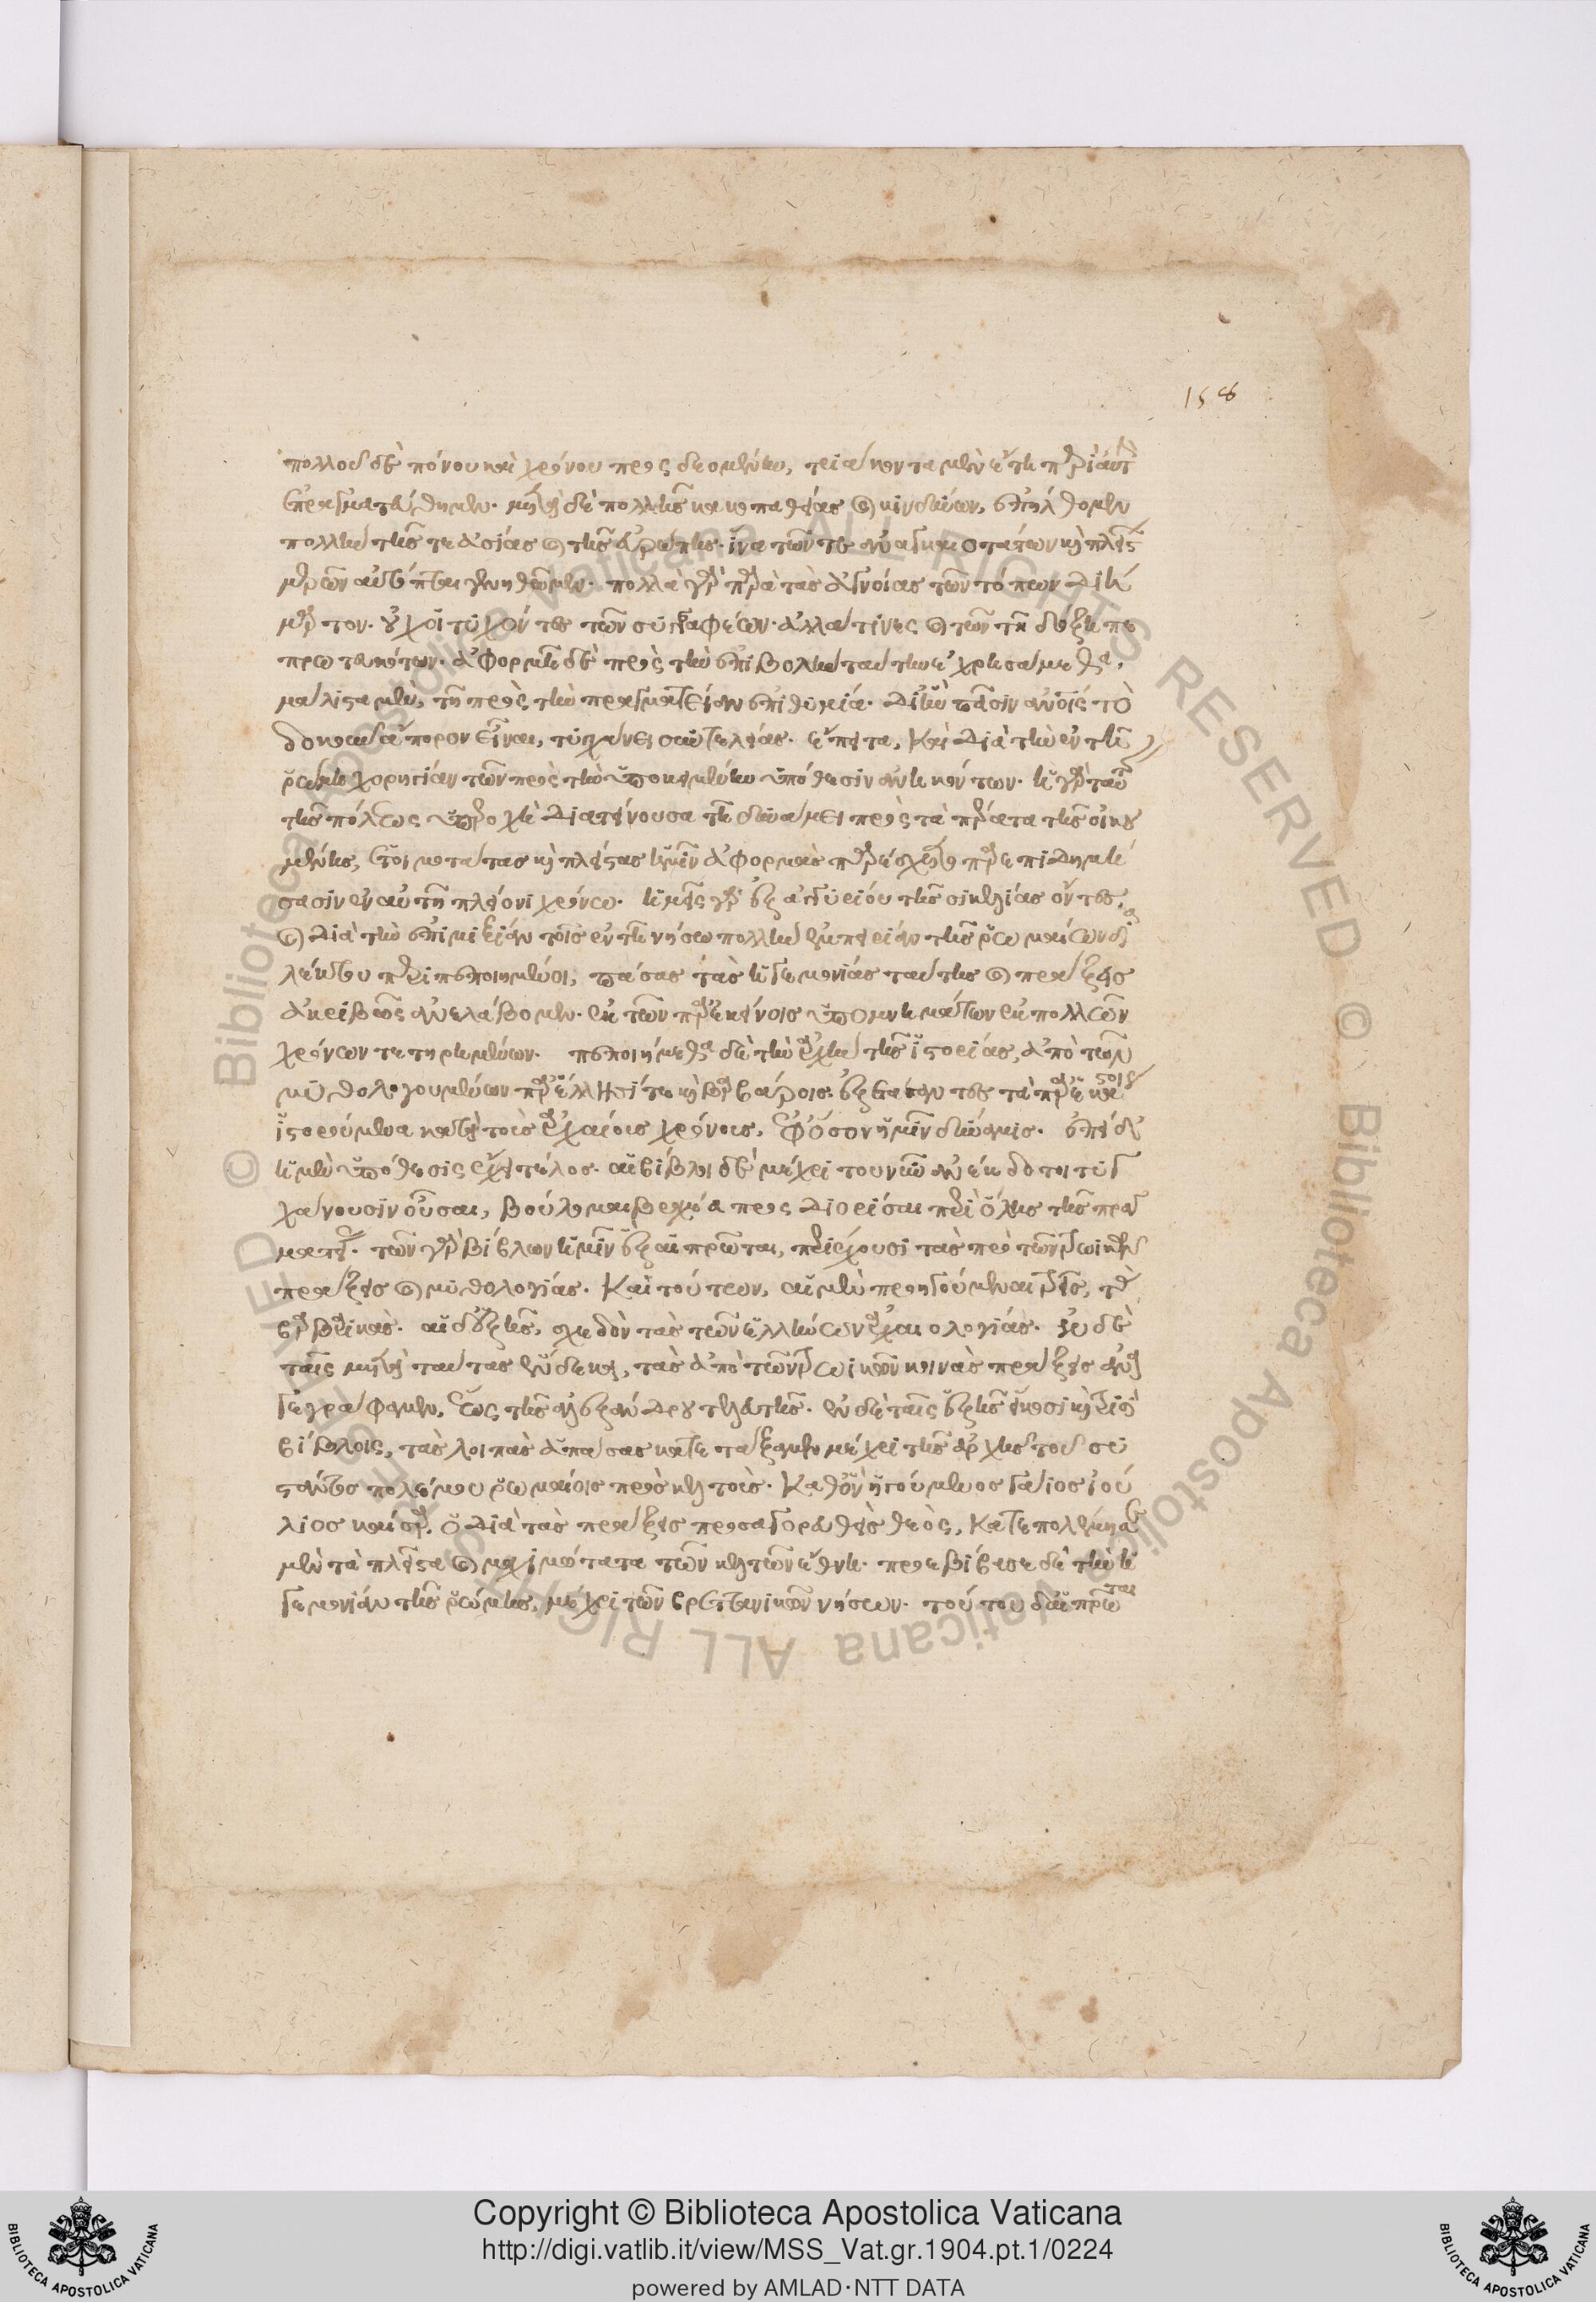 158
πολλοῦ δὲ πόνου καὶ χρόνου προσδεομένην, τριάκοντα μὲν ἔτη περὶ αὐτὴν
ἐπραγματεύθημεν. μετὰ δὲ πολλῆς κακοπαθείας καὶ κινδύνων, ἐπήλθομεν
πολλὴν τῆς τε ἀσίας καὶ τῆς εὐρώπης. ἵνα τῶν τε ἀναγκαιοτάτων καὶ πλείστων
μερῶν αὐτόπται γενηθῶμεν. πολλὰ γὰρ παρὰ τὰς ἀγνοίας τῶν τόπων διή
μαρτον. οὐχ οἱ τυχόντες τῶν συγγραφέων. ἀλλά τινες καὶ τῶν τῇ δόξῃ πε
πρωτευκότων. ἀφορμῇ δὲ πρὸς τὴν ἐπιβολὴν ταύτην ἐχρησάμεθα,
μάλιστα μὲν, τῇ πρὸς τὴν πραγματείαν ἐπιθυμίᾳ. δι' ἣν πᾶσιν ἀνθρώποις τὸ
δοκοῦν ἄπορον εἶναι, τυγχάνει συντελείας. ἔπειτα, καὶ διὰ τὴν ἐν τῇ
ῥώμῃ χορηγίαν τῶν πρὸς τὴν ὑποκειμένην ὑπόθεσιν ἀνηκόντων. ἡ γὰρ ταύτης
τῆς πόλεως ὑπεροχὴ διατείνουσα τῇ δυνάμει πρὸς τὰ πέρατα τῆς οἰκου
μένης, ἑτοιμοτάτας καὶ πλείστας ἡμῖν ἀφορμὰς παρέσχετο παρεπιδημή
σασιν ἐν αὐτῇ πλείονι χρόνῳ. ἡμεῖς γὰρ ἐξ ἀγυρίου τῆς σικελίας ὄντες,
καὶ διὰ τὴν ἐπιμιξίαν τοῖς ἐν τῇ νήσῳ πολλὴν ἐμπειρίαν τῆς ῥωμαίων δια
λέκτου περιπεποιημένοι, πάσας τὰς ἡγεμονίας ταύτης καὶ πράξεις
ἀκριβῶς ἀνελάβομεν. ἐκ τῶν παρ' ἐκείνοις ὑπομνημάτων ἐκ πολλῶν
χρόνων τετηρημένων. πεποιήμεθα δὲ τὴν ἀρχὴν τῆς ἱστορίας, ἀπὸ τῶν
μυθολογουμένων παρ' ἕλλησί τε καὶ βαρβάροις. ἐξετάσαντες τὰ παρ' ἑκάστοις
ἱστορούμενα κατὰ τοὺς ἀρχαίους χρόνους, ἐφ' ὅσον ἡμῖν δύναμις. ἐπεὶ δ'
ἡ μὲν ὑπόθεσις ἔχει τέλος. αἱ βίβλοι δὲ μέχρι τοῦ νῦν ἀνέκδοτοι τυγ
χάνουσιν οὖσαι, βούλομαι βραχέα προσδιορίσαι περὶ ὅλης τῆς πραγ
ματείας. τῶν γὰρ βίβλων ἡμῖν ἓξ αἱ πρῶται, περιέχουσι τὰς πρὸ τῶν τρωικῶν
πράξεις καὶ μυθολογίας. καὶ τούτων, αἱ μὲν προηγούμεναι τρεῖς, τὰς
βαρβαρικάς. αἱ δ' ἑξῆς, σχεδὸν τὰς τῶν ἑλλήνων ἀρχαιολογίας. ἐν δὲ
ταῖς μετὰ ταύτας ἕνδεκα, τὰς ἀπὸ τῶν τρωικῶν κοινὰς πράξεις ἀνα
γεγράφαμεν, ἕως τῆς ἀλεξάνδρου τελευτῆς. ἐν δὲ ταῖς ἑξῆς εἴκοσι καὶ τρισὶ
βίβλοις, τὰς λοιπὰς ἁπάσας κατετάξαμεν μέχρι τῆς ἀρχῆς τοῦ συ
στάντος πολέμου ῥωμαίοις πρὸς κελτούς. καθ' ὃν ἡγούμενος γάιος ἰού
λιος καῖσαρ, ὁ διὰ τὰς πράξεις προσαγορευθεὶς θεὸς, κατεπολέμησε
μὲν τὰ πλεῖστα καὶ μαχιμώτατα τῶν κελτῶν ἔθνη. προεβίβασε δὲ τὴν ἡ
γεμονίαν τῆς ῥώμης, μέχρι τῶν βρεττανικῶν νήσων. τούτου δ' αἱ πρῶται
Copyright © Biblioteca Apostolica Vaticana
http://digi.vatlib.it/view/MSS_Vat.gr.1904.pt.1/0224
powered by AMLAD·NTT DATA